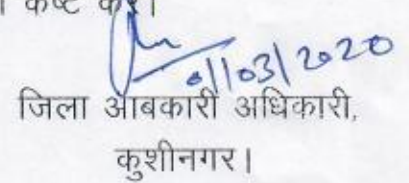 कष्ट करें।
01/03/2020
जिला आबकारी अधिकारी,
कुशीनगर।